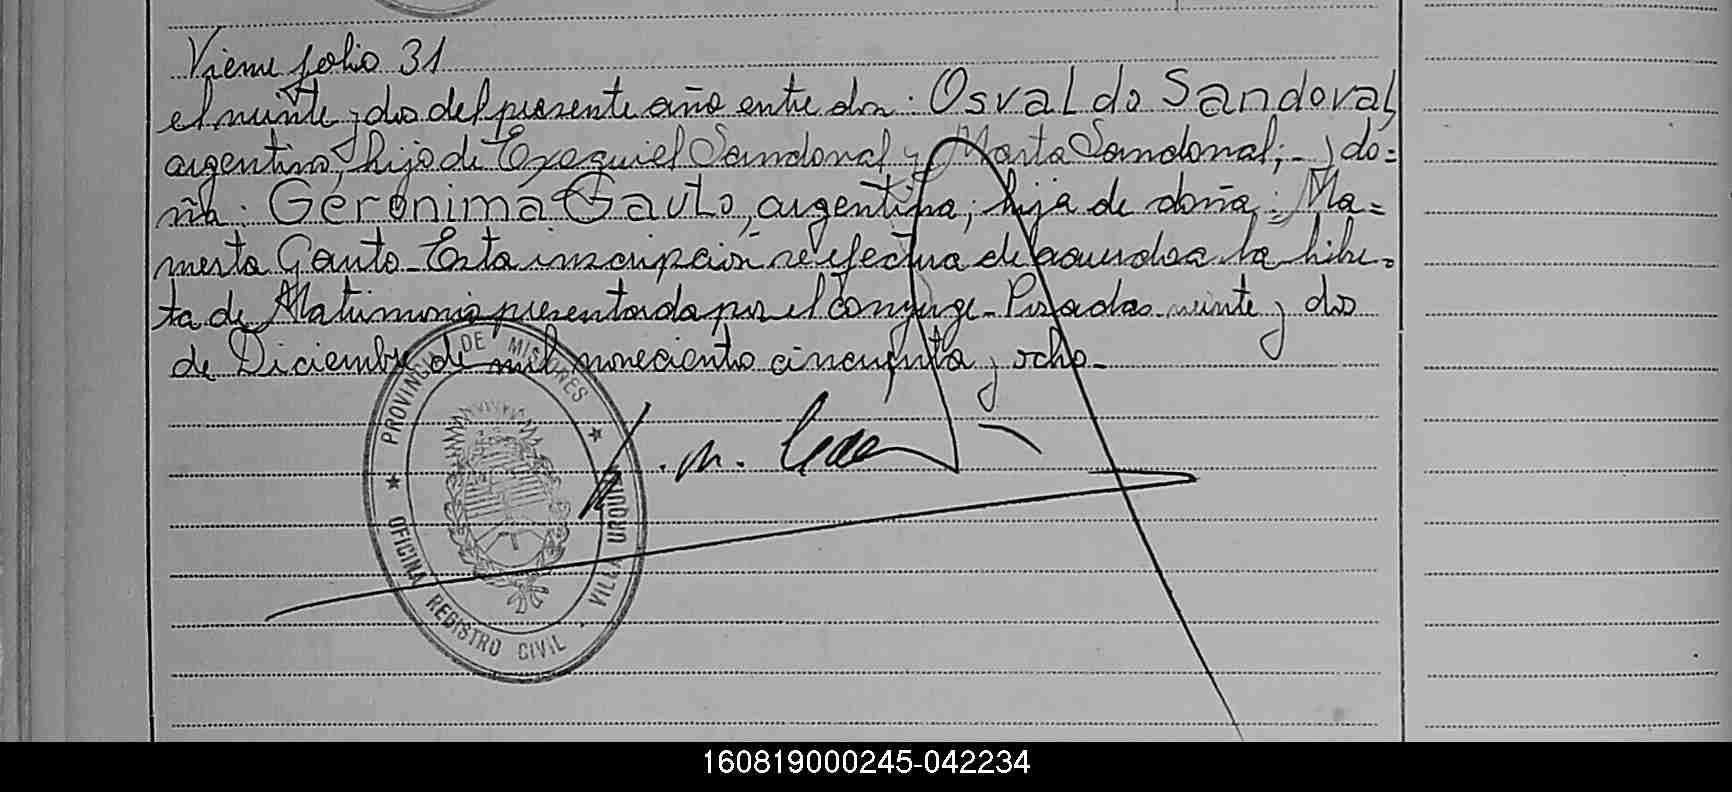 Viene folio 31
el veinte y dos del presente año entre don: Osvaldo Sandoval,
argentino, hijo de Exequiel Sandoval y Marta Sandoval; - y do=
ña: Gerónima Gauto, argentina, hija de doña: Ma=
merta Gauto - Esta inscripción se efectua de acuerdo a la libre=
ta de Matrimonio presentada por el conyuge - Posadas veinte y dos
de Diciembre de mil novecientos cincuenta y ocho -
PROVINCIA DE MISIONES
OFICINA REGISTRO CIVIL - VILLA URQUIZA
160819000245-042234